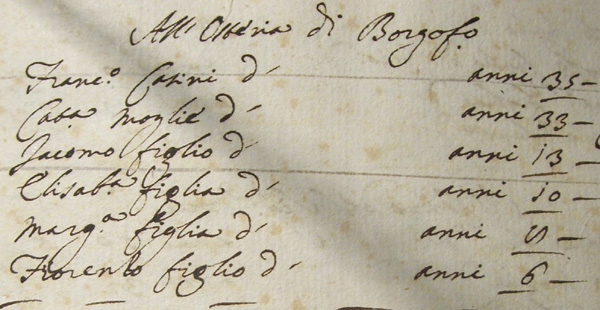 All' Osteria di Borgofo
Franc.º Casini d' anni 35 –
Cat.ª Moglie d' anni 33 –
Jacomo figlio d' anni 13 –
Elisab.ª figlia d' anni 10 –
Marg.ª figlia d' anni –
Fiorenzo figlio d' anni 6 –